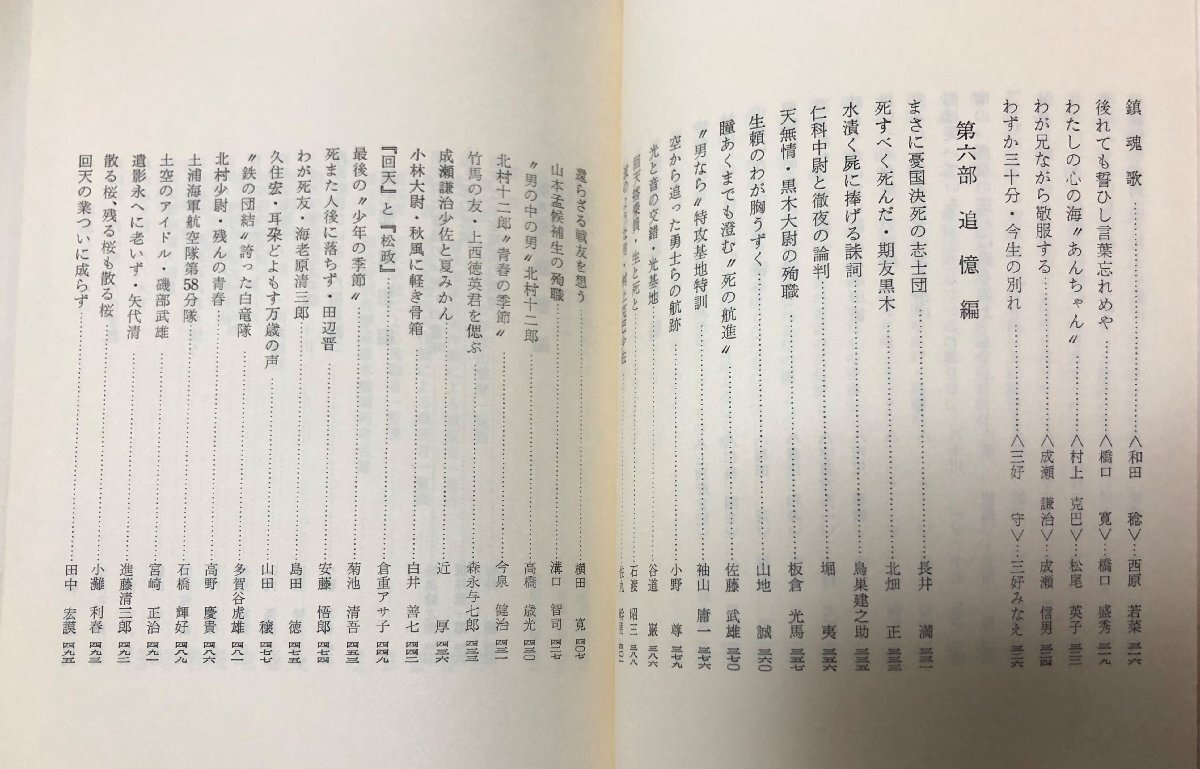 鎮魂歌…………〈和田　稔〉…西原　若菜　三一六
後れても誓ひし言葉忘れめや…………〈橋口　寛〉…橋口　盛秀　三一九
わたしの心の海〝あんちゃん〟…………〈村上　克巴〉…松尾　英子　三二二
わが兄ながら敬服する…………〈成瀬　謙治〉…成瀬　信男　三二四
わずか三十分・今生の別れ…………〈三好　守〉…三好みなえ　三二六
第六部　追憶編
まさに憂国決死の志士団…………長井　満　三三一
死すべく死んだ・期友黒木…………北畑　正　三三三
水漬く屍に捧げる誄詞…………鳥巣建之助　三三五
仁科中尉と徹夜の論判…………堀　夷　三五六
天無情・黒木大尉の殉職…………板倉　光馬　三五七
生頼のわが胸うずく…………山地　誠　三六〇
瞳あくまでも澄む〝死の航進〟…………佐藤　武雄　三七〇
〝男なら〟特攻基地特訓…………袖山　庸一　三七六
空から追った勇士らの航跡…………小野　尊　三七九
光と音の交錯・光基地…………谷道　巌　三八六
回天搭乗員・生と死と…………石渡　昭三　三八八
還らざる戦友を思う…………横田　寛　四〇七
山本孟候補生の殉職…………溝口　智司　四二七
〝男の中の男〟北村十二郎…………高橋　歳光　四三〇
北村十二郎〝青春の季節〟…………今泉　健治　四三一
竹馬の友・上西徳英君を偲ぶ…………森永与七郎　四三三
成瀬謙治少佐と夏みかん…………近　厚　四三六
小林大尉・秋風に軽き骨箱…………白井　善七　四四二
『回天』と『松政』…………倉重アサ子　四四九
最後の〝少年の季節〟…………菊池　清吾　四五一
死また人後に落ちず・田辺晋…………安藤　悟郎　四五二
わが死友・海老原清三郎…………島田　徳　四五五
久住宏・耳朶どよもす万歳の声…………山田　穣　四五七
〝鉄の団結〟誇った白竜隊…………多賀谷虎雄　四六一
北村少尉・残んの青春…………高野　慶貴　四六六
土浦海軍航空隊第58分隊…………石橋　輝好　四八九
土空のアイドル・磯部武雄…………宮崎　正治　四九一
遺影永へに老いず・矢代清…………進藤清三郎　四九二
散る桜、残る桜も散る桜…………小灘　利春　四九三
回天の業ついに成らず…………田中　宏謨　四九五